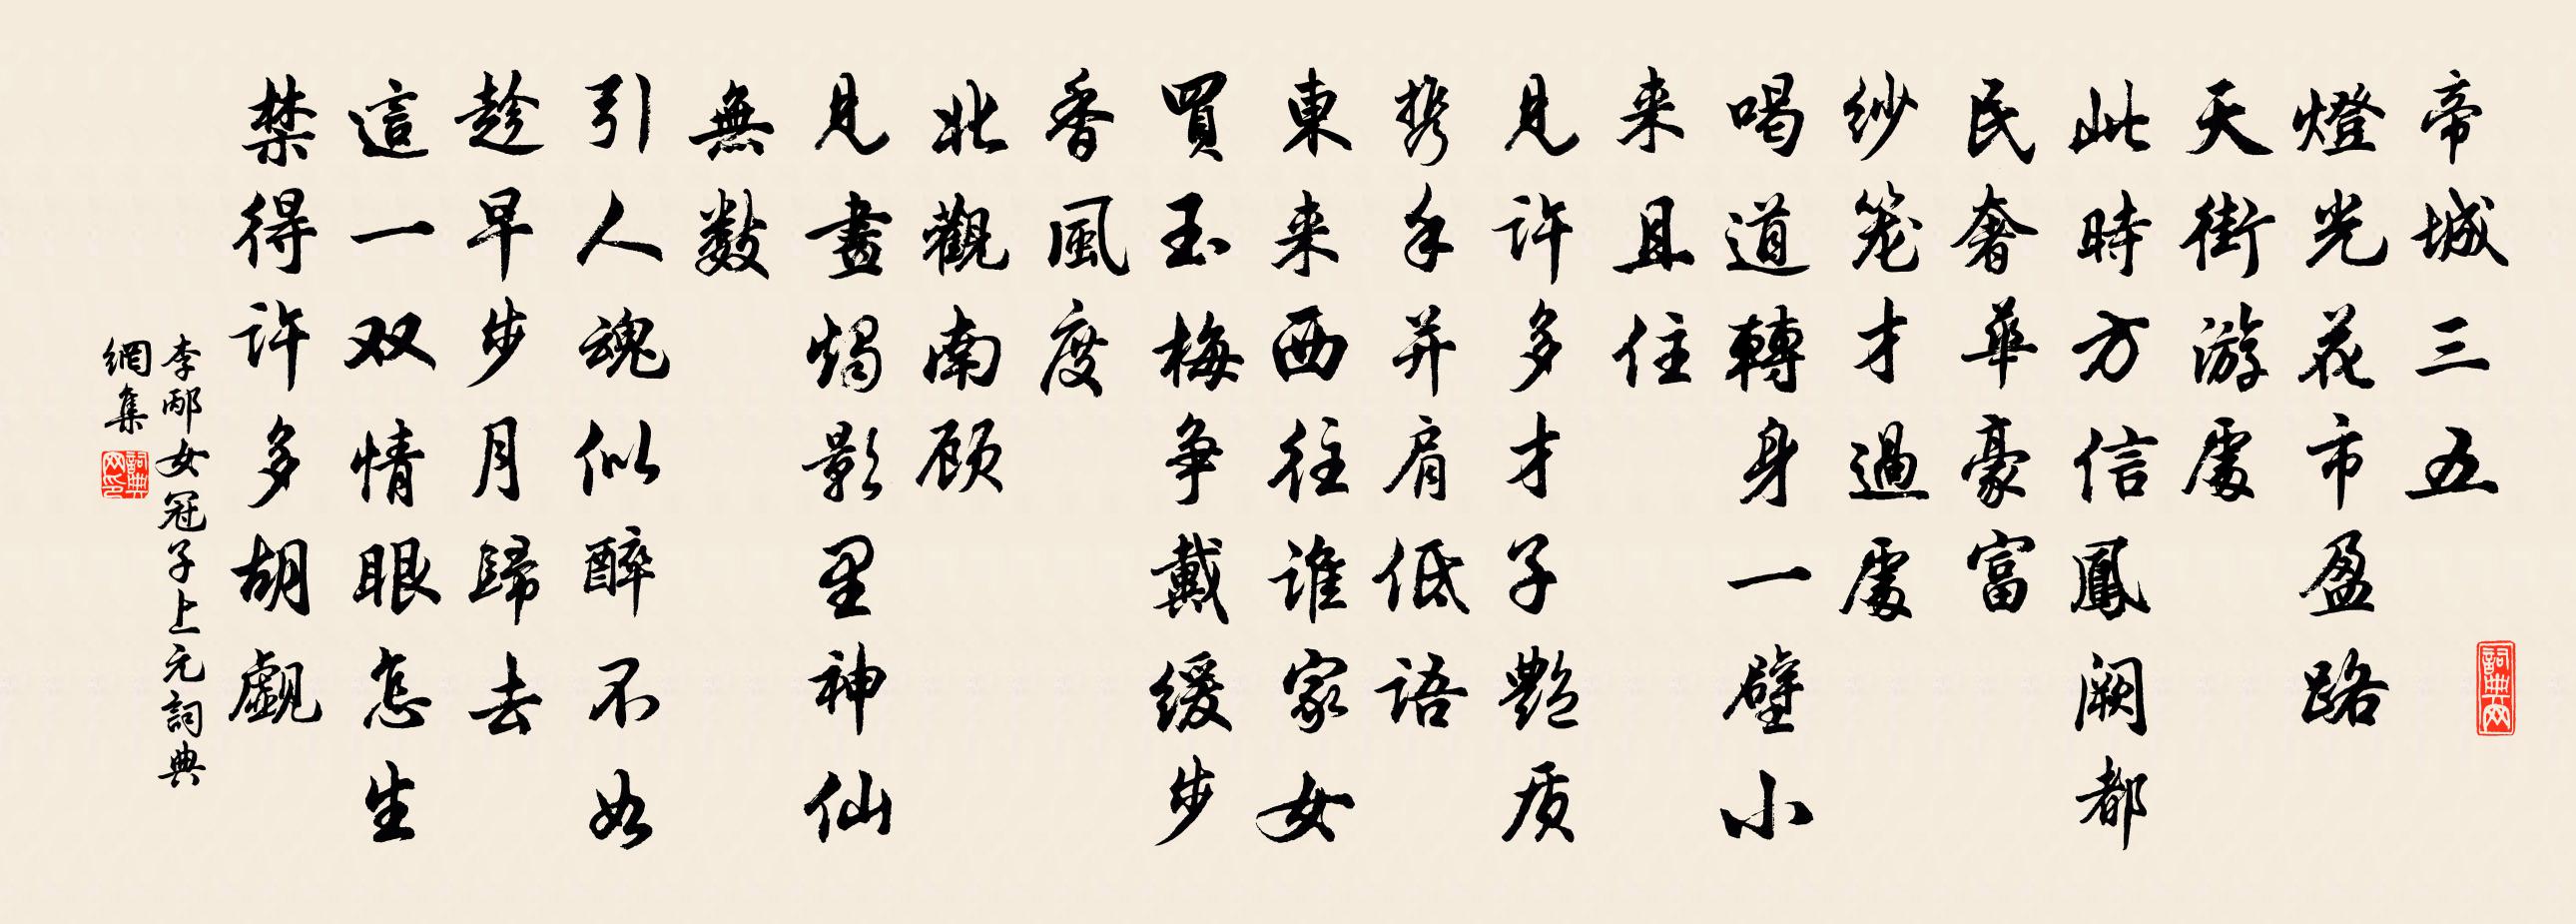 帝城三五
燈光花市盈路
天街游處
此時方信鳳闕都
民奢華豪富
紗笼才過處
喝道轉身一壁小
来且住
見許多才子艶质
携手并肩低語
東来西往谁家女
買玉梅争戴缓步
香風度
北觀南顾
見畫燭影里神仙
無數
引人魂似醉不如
趁早步月歸去
這一双情眼怎生
禁得許多胡覷
李邴女冠子上元詞典
網集
詞典网
詞典网印